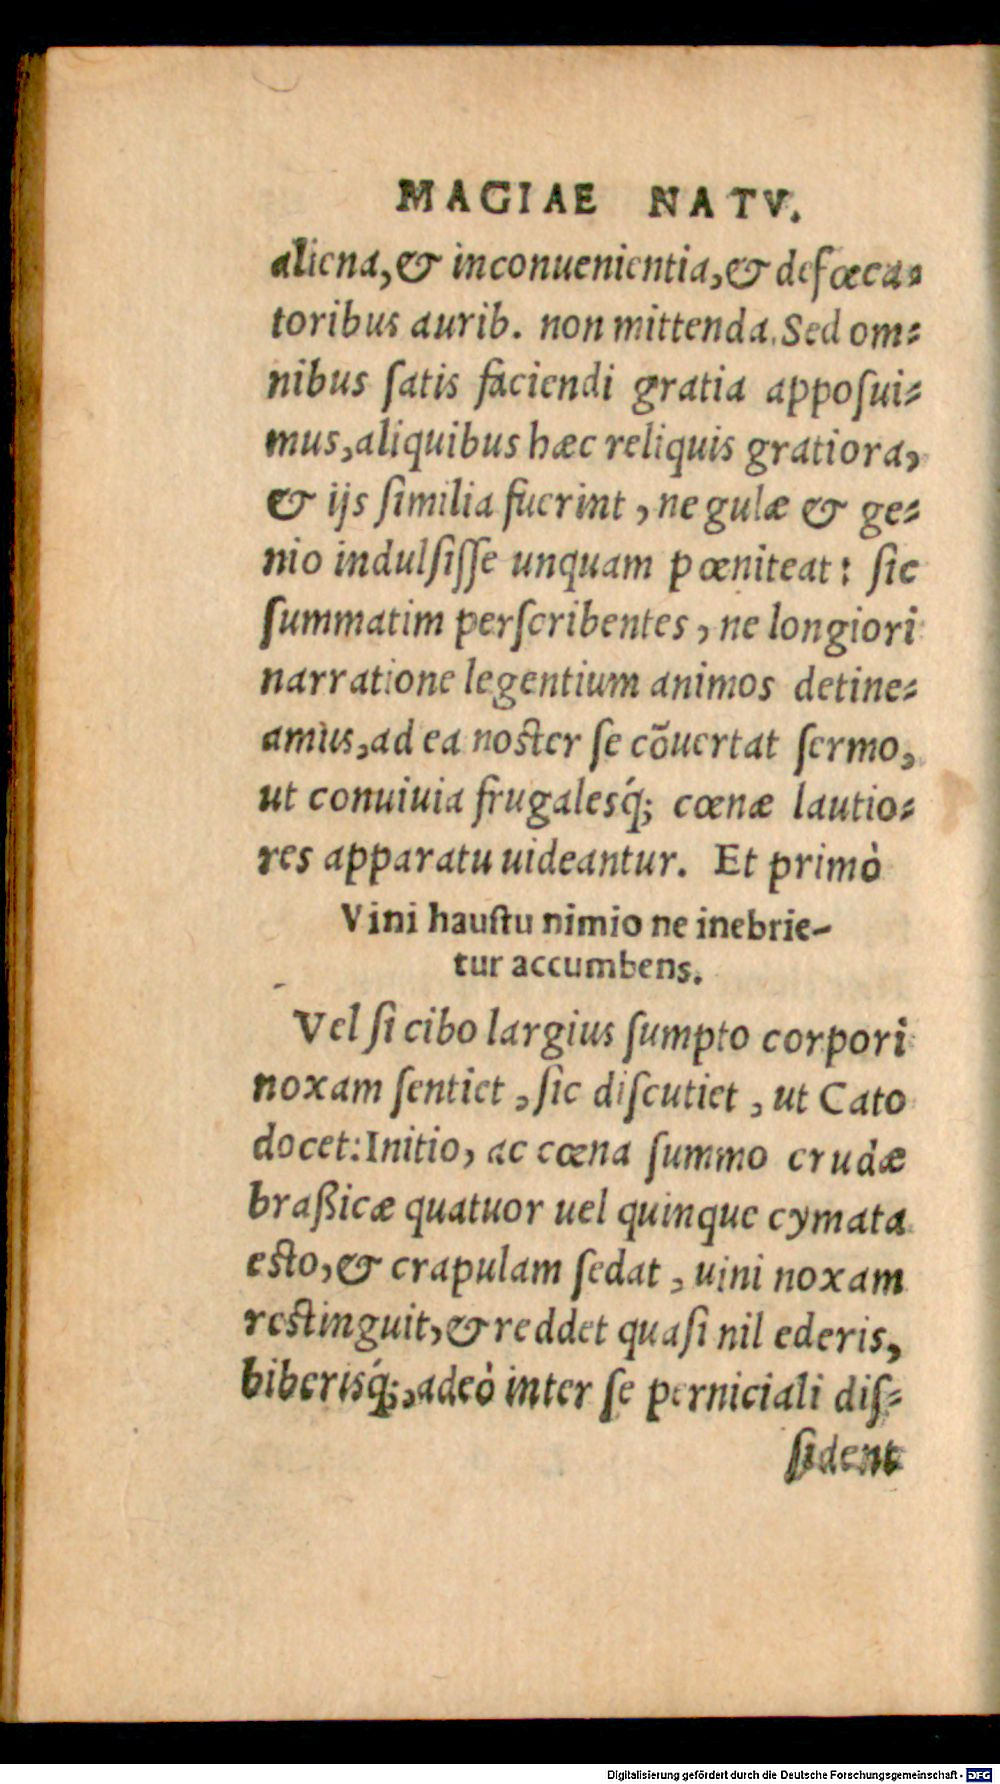 MAGIAE NATV.
aliena,& inconuenientia,& defœca-
toribus aurib. non mittenda. Sed om-
nibus ſatis faciendi gratia appoſui-
mus,aliquibus hæc reliquis gratiora,
& ijs ſimilia fuerint , ne gulæ & ge-
nio indulſiſſe unquam pœniteat: ſic
ſummatim perſcribentes , ne longiori
narratione legentium animos detine-
amus,ad ea noſter ſe cõuertat ſermo,
ut conuiuia frugalesq́; cœnæ lautio-
res apparatu uideantur. Et primò
Vini hauſtu nimio ne inebrie-
tur accumbens.
Vel ſi cibo largius ſumpto corpori
noxam ſentiet , ſic diſcutiet , ut Cato
docet: Initio, ac cœna ſummo crudæ
braßicæ quatuor uel quinque cymata
eſto,& crapulam ſedat , uini noxam
reſtinguit,& reddet quaſi nil ederis,
biberisq́;,adeò inter ſe perniciali diſ-
ſident
Digitalisierung gefördert durch die Deutsche Forschungsgemeinschaft - DFG